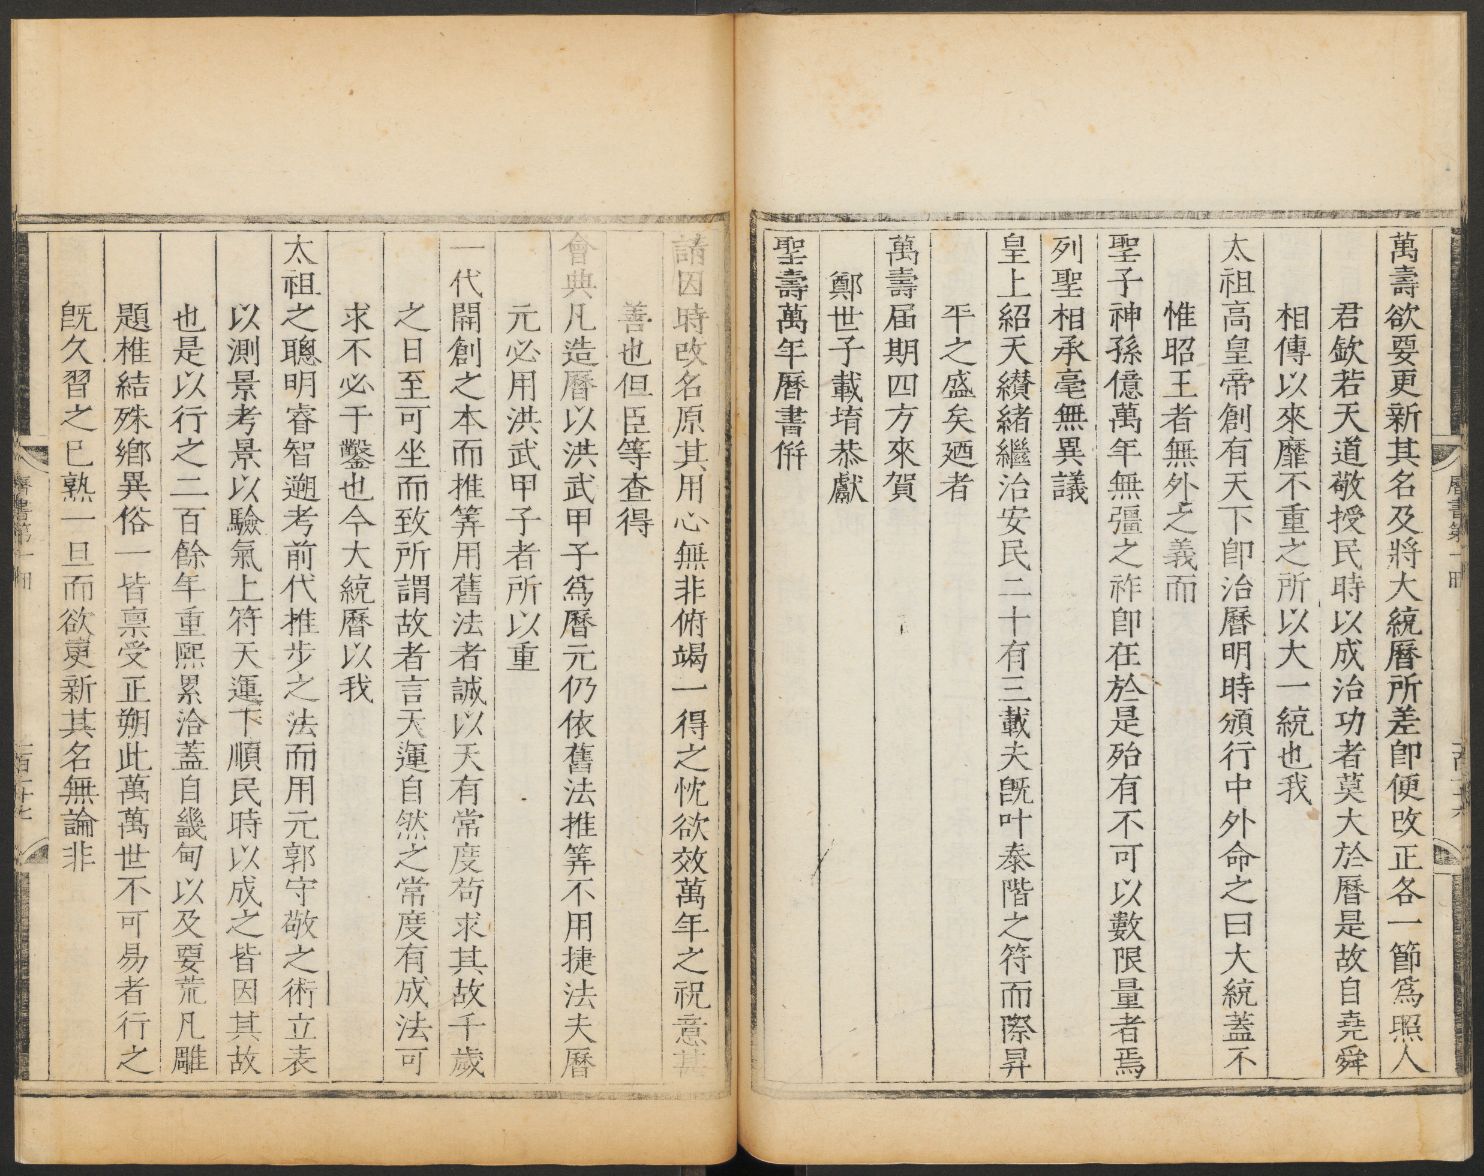 萬壽欲要更新其名及將大統曆所差卽便改正各一節爲照人
君欽若天道敬授民時以成治功者莫大於曆是故自堯舜
相傳以來靡不重之所以大一統也我
太祖高皇帝創有天下卽治曆明時頒行中外命之曰大統蓋不
惟昭王者無外之義而
聖子神孫億萬年無彊之祚卽在於是殆有不可以數限量者焉
列聖相承毫無異議
皇上紹天纉緒繼治安民二十有三載夫旣叶泰階之符而際昇
平之盛矣廼者
萬壽届期四方來賀
鄭世子載堉恭獻
聖壽萬年曆書倂
請因時改名原其用心無非俯竭一得之忱欲效萬年之祝意甚
善也但臣等查得
會典凡造曆以洪武甲子爲曆元仍依舊法推筭不用捷法夫曆
元必用洪武甲子者所以重
一代開創之本而推筭用舊法者誠以天有常度苟求其故千歲
之日至可坐而致所謂故者言天運自然之常度有成法可
求不必于鑿也今大統曆以我
太祖之聰明睿智遡考前代推步之法而用元郭守敬之術立表
以測景考景以驗氣上符天運下順民時以成之皆因其故
也是以行之二百餘年重熙累洽蓋自畿甸以及要荒凡雕
題椎結殊鄉異俗一皆禀受正朔此萬萬世不可易者行之
旣久習之已熟一旦而欲更新其名無論非
曆書第一冊
一百二十六
曆書第一冊
一百二十七